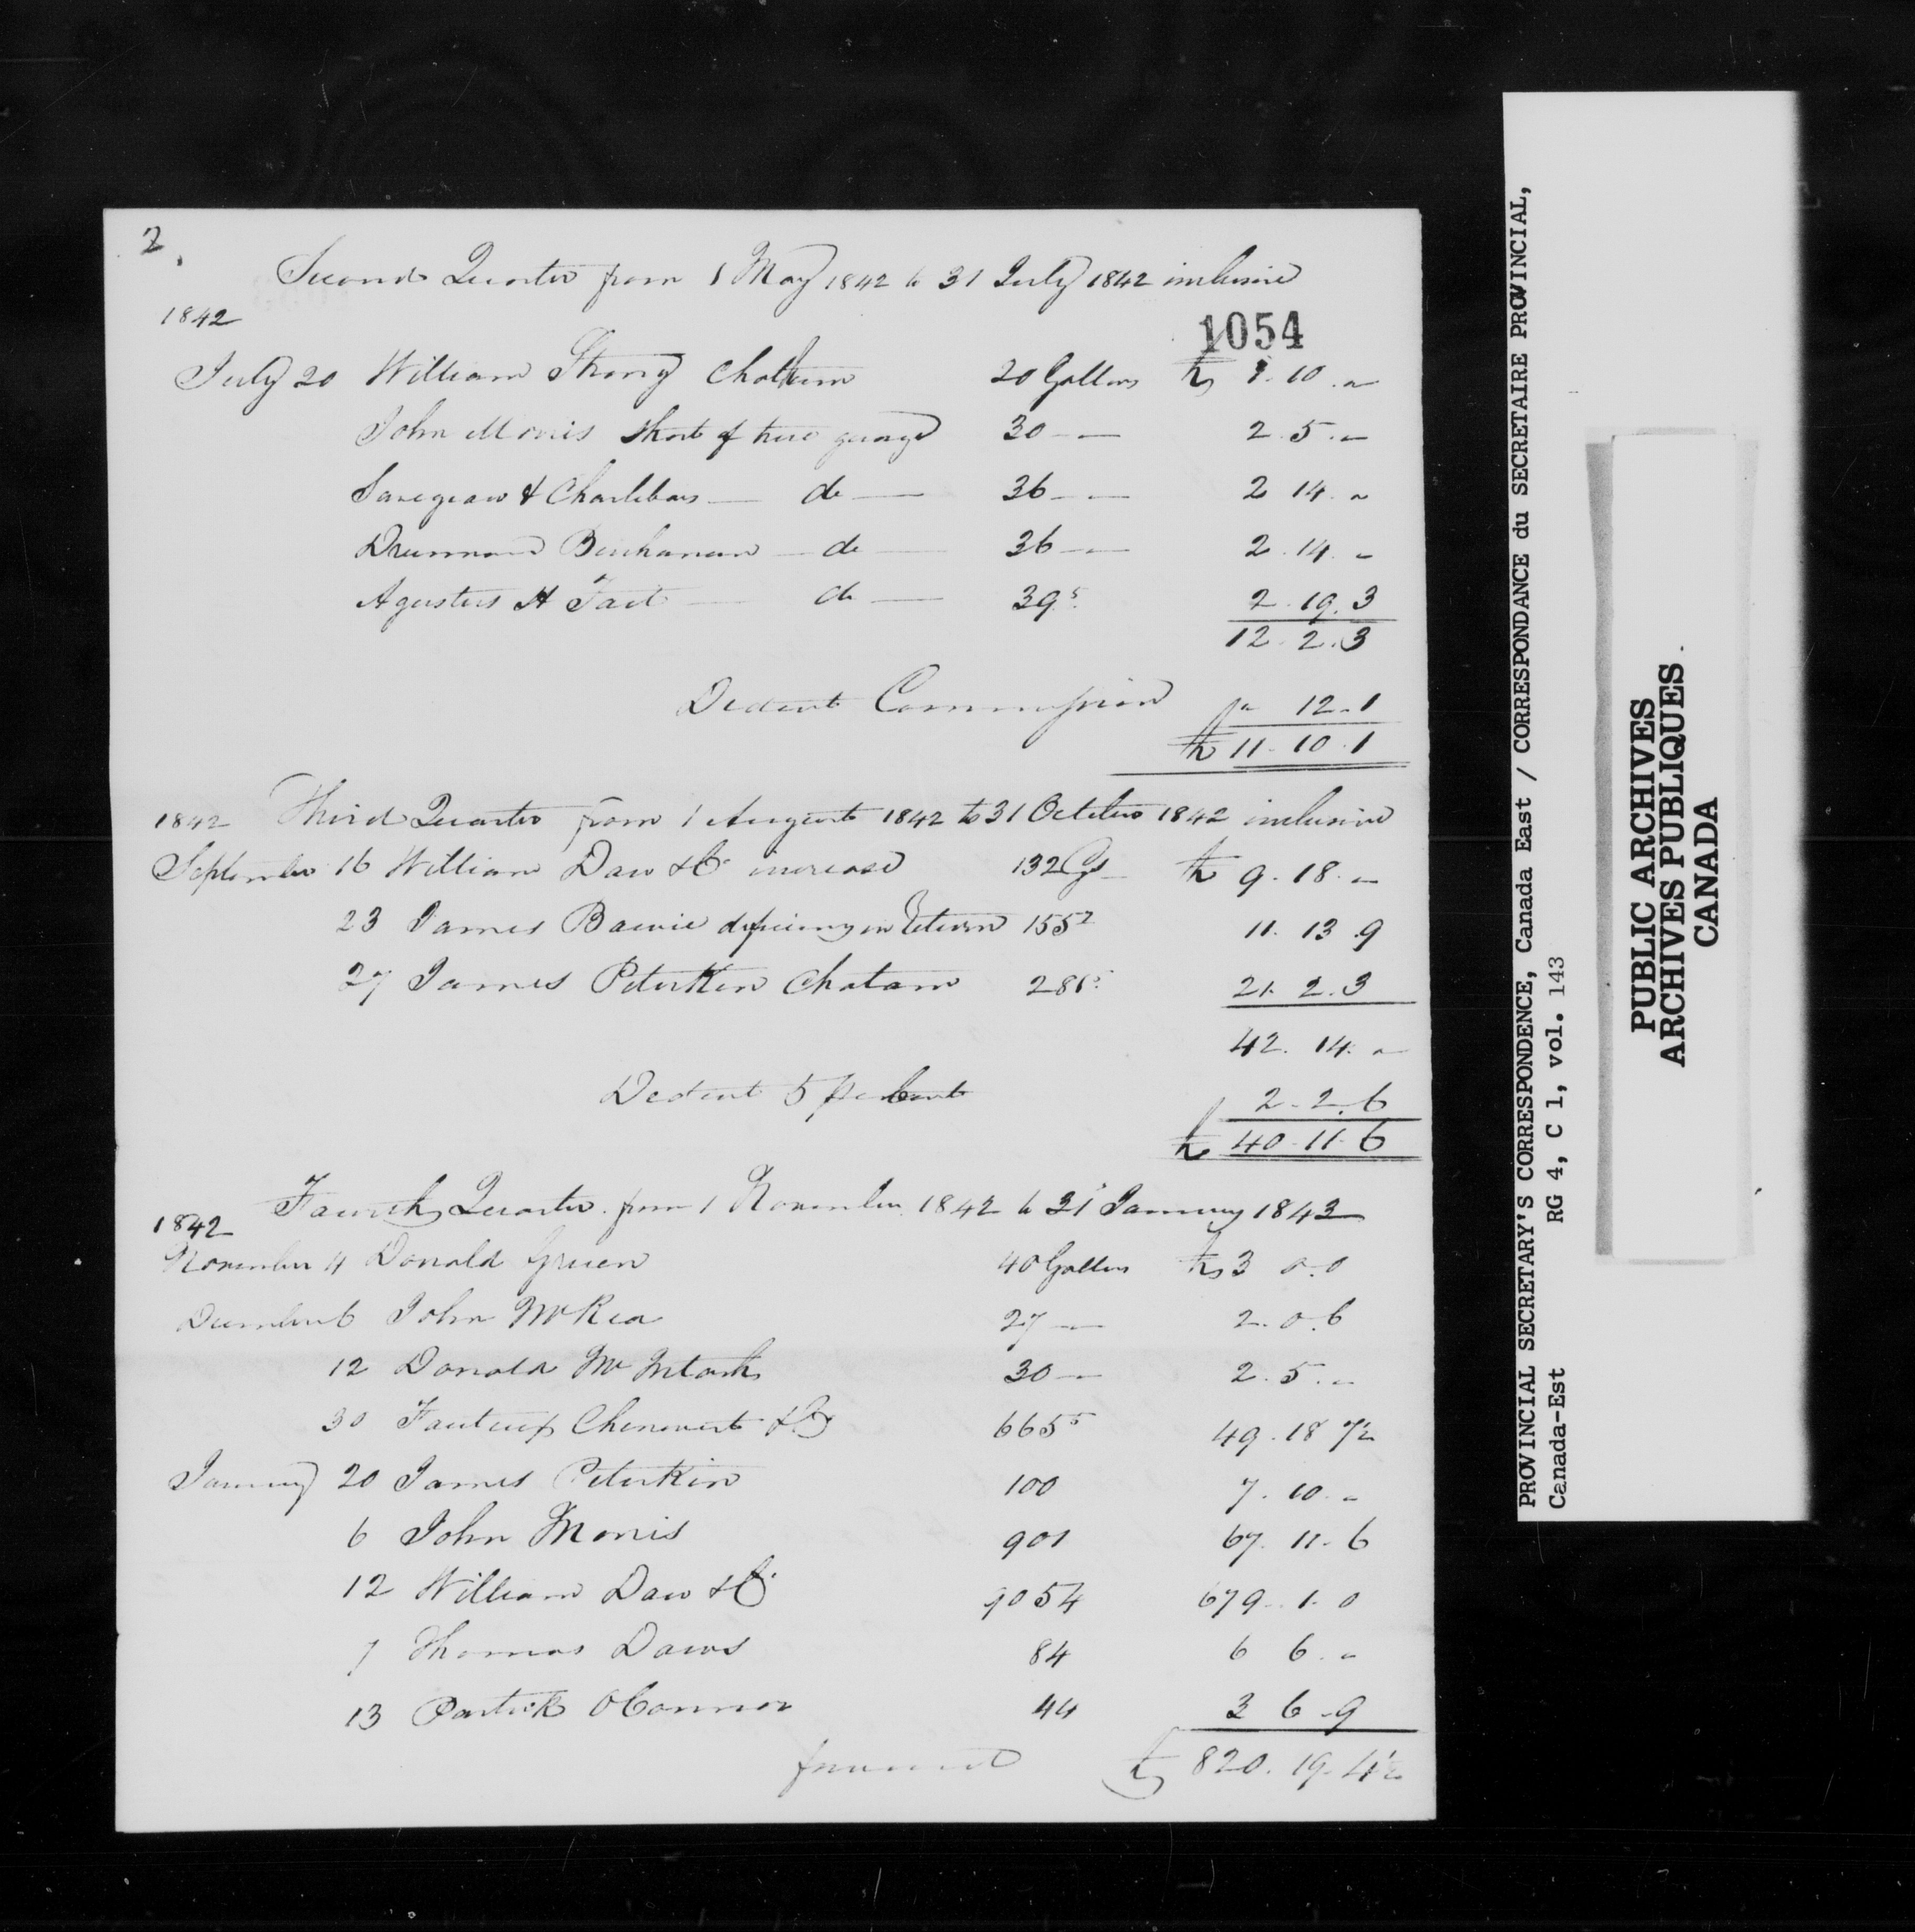 2.
Second Quarter from 1 May 1842 to 31 July 1842 inclusive
1842
1054
July 20 William Strong Chatham 20 Gallons £ 1. 10. "
John Morris Short of true guage 30 — 2. 5. "
& Charlebois — do — 36 — 2 14. "
Drummond Buchanan — do — 36 — 2. 14. "
Agustus H Tait — do — 39.5 2. 19. 3
12. 2. 3
Deduct Commission " 12. 1
£ 11. 10. 1
1842 Third Quarter from 1 August 1842 to 31 October 1842 inclusive
September 16 William Daw & Co increase 132 Gs £ 9. 18. "
23 James Bawie deficiency in Return 155 11. 13. 9
27 James Peterkin Chatam 281.5 21. 2. 3
42. 14. "
Deduct 5 per Cent 2. 2. 6
£ 40. 11. 6
Fourth Quarter from 1 November 1842 to 31 January 1843
1842
November 4 Donald Green 40 Gallons £ 3 0. 0
December 6 John McRea 27 — 2. 0. 6
12 Donald McIntosh 30 — 2. 5. "
30 Fauteux Chenevert & Co 665 49. 18 7½
January 20 James Peterkin 100 7. 10. "
6 John Morris 901 67. 11. 6
12 William Daw & Co 9054 679. 1. 0
7 Thomas Daws 84 6 6. "
13 Partick OConnor 44 3 6. 9
forward £ 820. 19. 4½
PROVINCIAL SECRETARY'S CORRESPONDENCE, Canada East / CORRESPONDANCE du SECRETAIRE PROVINCIAL,
Canada-Est RG 4, C 1, vol. 143
PUBLIC ARCHIVES
ARCHIVES PUBLIQUES
CANADA